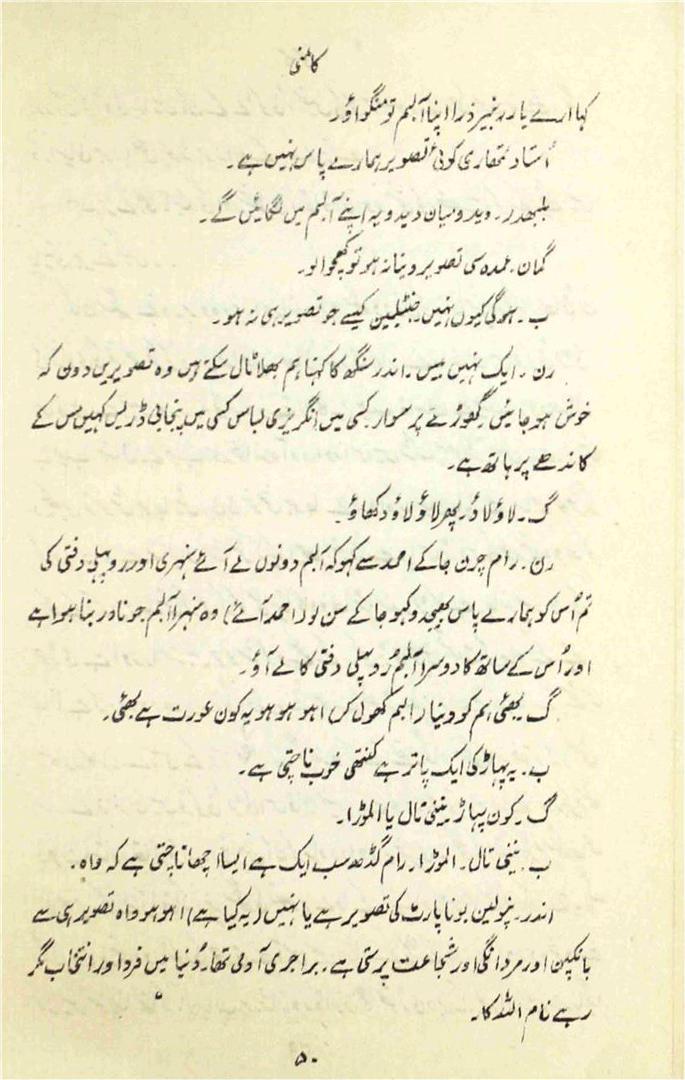 کامنی
کہا ارے یار رنبیر ذرا اپنا البم تو منگواؤ۔
اُستاد تمھاری کوئی تصویر ہمارے پاس نہیں ہے۔
بلبھدر۔ ویدو میاں دیدو یہ اپنے آلبم میں لگائیں گے۔
گمان۔ عمدہ سی تصویر و ینا نہ ہو تو کھچوالو۔
ب۔ ہوگی کیوں نہیں۔ جنٹیلمین کیسے جو تصویر ہی نہ ہو۔
رن۔ ایک نہیں بیس۔ اندر سنگھ کا کہنا ہم بھلا ٹال سکتے ہیں وہ تصویریں دون کہ
خوش ہو جائیں۔ گھوڑے پر سوار۔ کسی میں انگریزی لباس کسی میں پنجابی ڈریس کہیں مس کے
کاندھے پر ہاتھ ہے۔
گ۔ لاؤ لاؤ۔ پھر لاؤ لاؤ دکھاؤ۔
رن۔ رام چرن جا کے احمد سے کہو کہ آلبم دونوں لے آئے سنہری اور روپہلی دفتی کی
تم اُس کو ہمارے پاس بھیجدو کہو جا کے سن لو (احمد آئے) وہ سنہرا آلبم جو نادر بنا ہوا ہے
اور اُس کے ساتھ کا دوسرا آلبم رُوپہلی دفتی کا لے آؤ۔
گ۔ بھئی ہم کو دینا (البم کھول کر) اہو ہو ہو یہ کون عورت ہے بھئی۔
ب۔ یہ پہاڑ کی ایک پاتر ہے کنتھی خوب ناچتی ہے۔
گ۔ کون پہاڑ نینی تال یا الموڑا۔
ب۔ نینی تال۔ الموڑا۔ رام گڈھ سب ایک ہے ایسا اچھا ناچتی ہے کہ واہ۔
اندر۔ نپولین بوناپارٹ کی تصویر ہے یا نہیں (یہ کیا ہے) اہو ہو واہ تصویر ہی سے
بانکپن اور مردانگی اور شجاعت برستی ہے۔ بڑا جری آدمی تھا۔ دُنیا میں فرد اور انتخاب مگر
رہے نام اللہ کا۔
۵۰